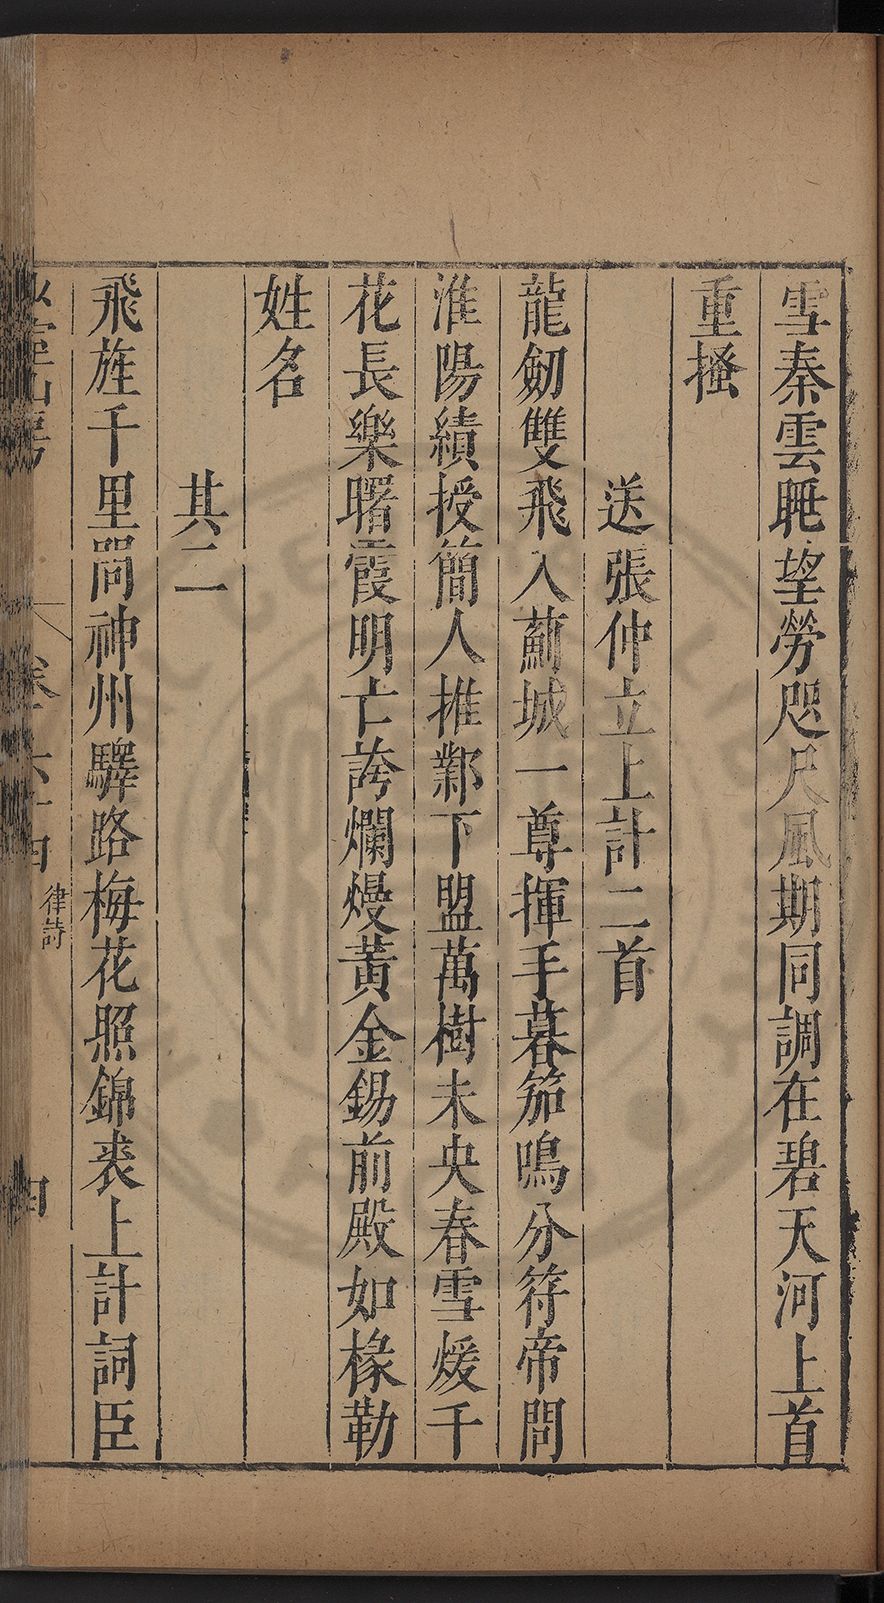 雪秦雲眺望勞咫尺風期同調在碧天河上首
重搔
送張仲立上計二首
龍劒雙飛入薊城一尊揮手暮笳鳴分符帝問
淮陽績授簡人推鄴下盟萬樹未央春雪煖千
花長樂曙霞明亡誇爛熳黃金錫前殿如椽勒
姓名
其二
飛旌千里問神州驛路梅花照錦裘上計詞臣
山房
律詩